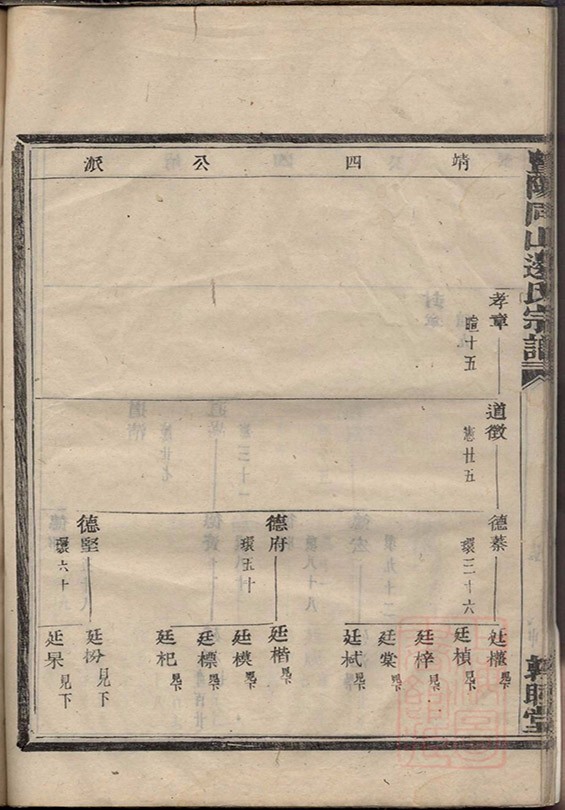 暨陽同山邊氏宗譜
靖四公派
孝章
暄十五
道徵
憲廿五
德蓁
環三十六
廷櫃見下
廷楨見下
廷梓見下
廷棠見下
廷栻見下
德府
環五十
廷楷見下
廷模見下
廷標見下
廷杞見下
德堅
環六十
廷枌見下
廷杲見下